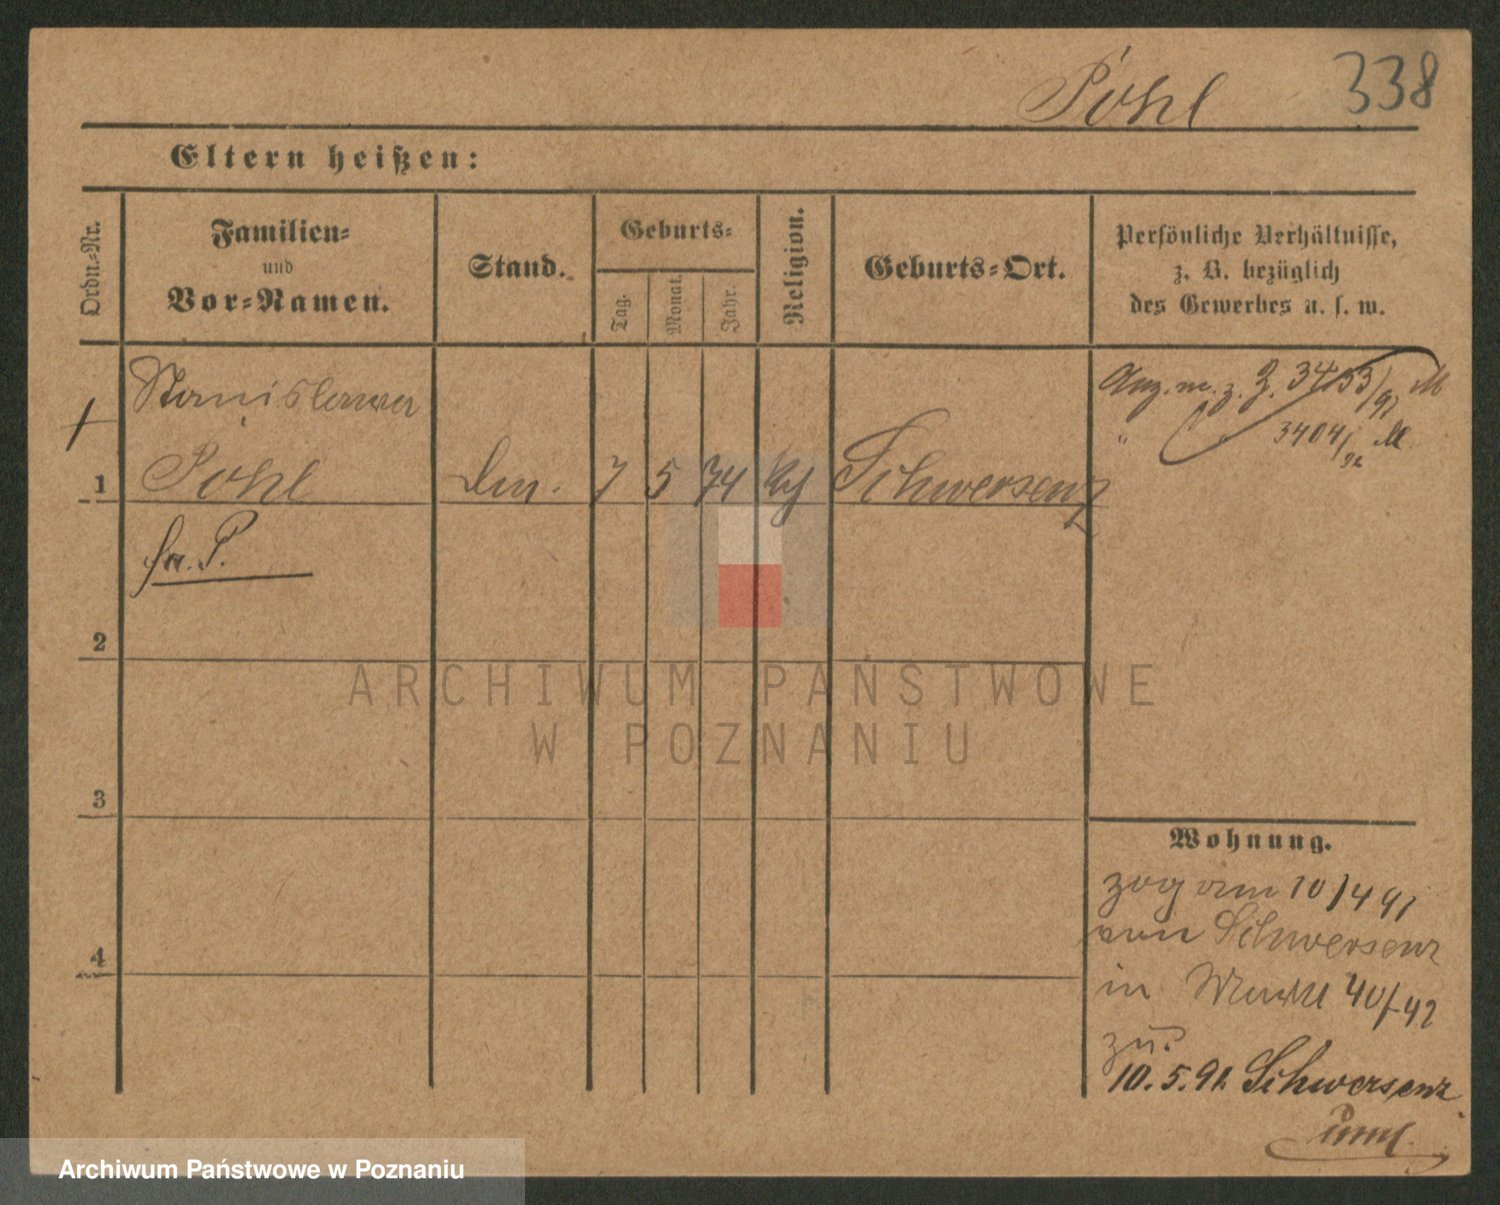 Pohl
338
Eltern heißen:
Ordn.-Nr.
Familien-
und
Vor-Namen.
Stand.
Geburts-
Tag.
Monat.
Jahr.
Religion.
Geburts-Ort.
Persönliche Verhältnisse,
z. B. bezüglich
des Gewerbes u. s. w.
Stanislawa
Anz. m. z. Z. 3453/91 M
" 3404/92 M
1 Pohl 7 5 74 Schwersenz
2
ARCHIWUM PAŃSTWOWE
W POZNANIU
3
Wohnung.
zog am 10/4 91
von Schwersenz
4
in Markt 40/42
zu:
10. 5. 91. Schwersenz
Archiwum Państwowe w Poznaniu